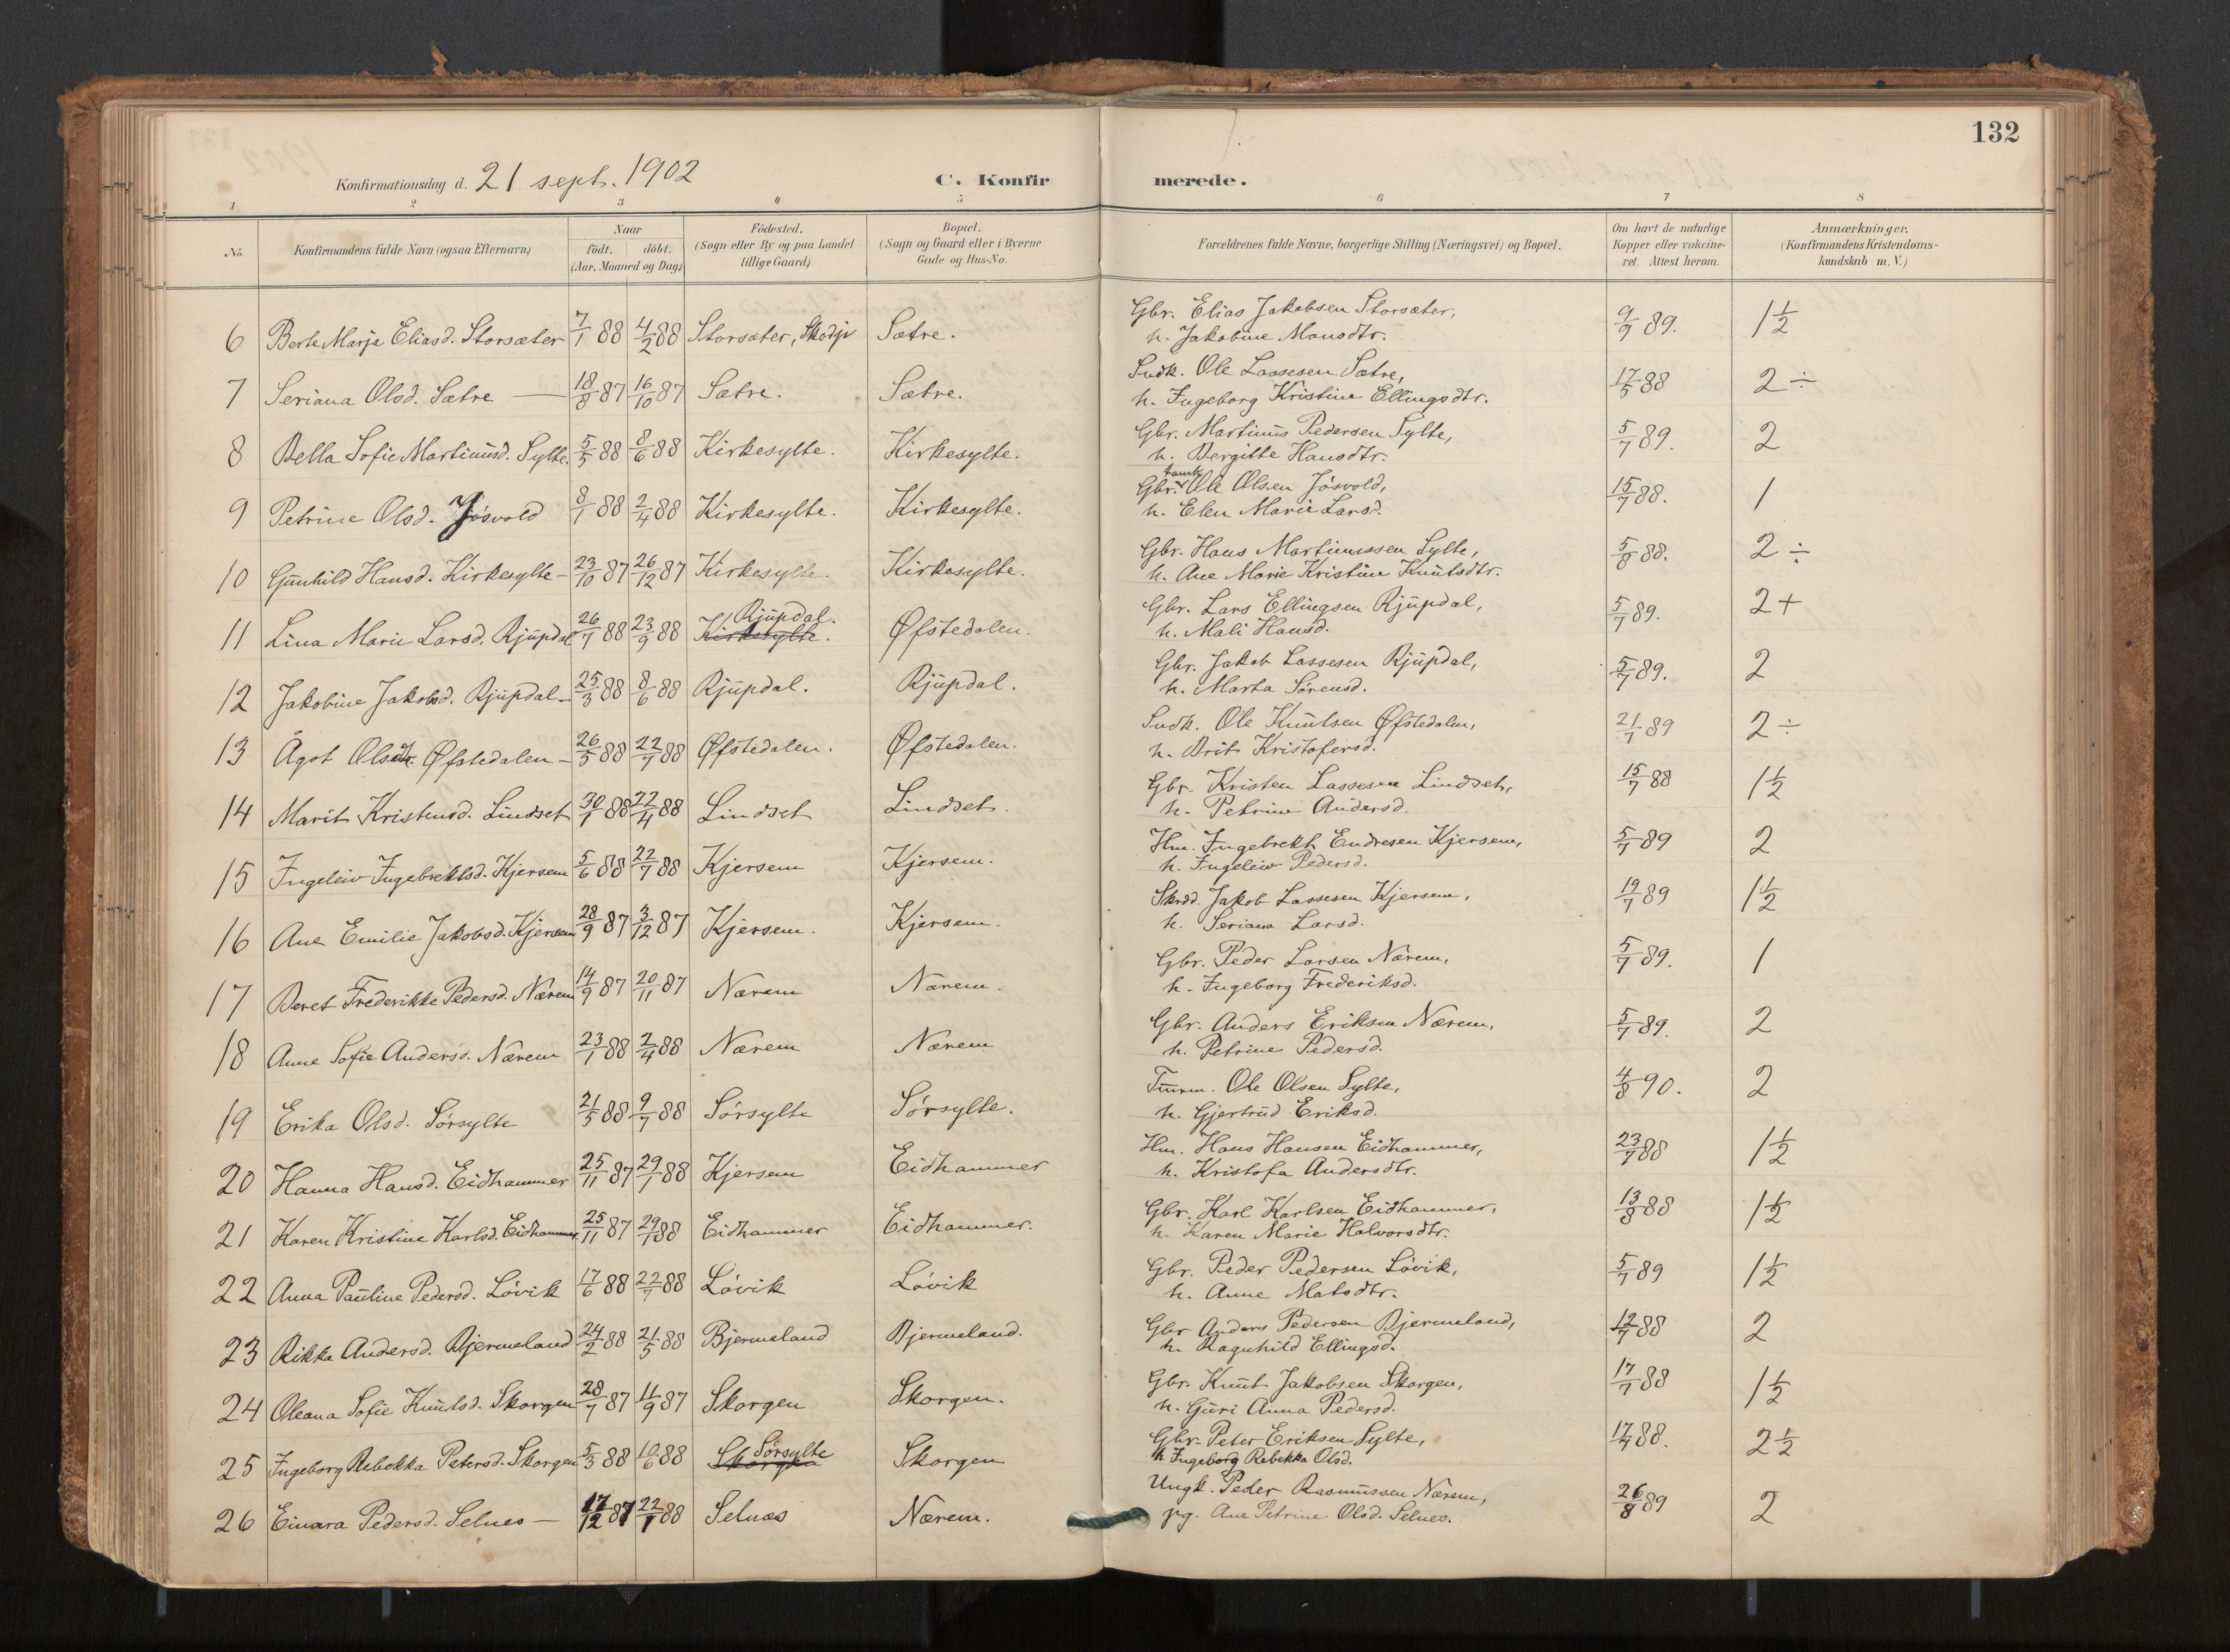 132
Konfirmationsdag d. 21 sept. 1902
C. Konfirmerede.
1 2 3 4 5 6 7 8
No. | Konfirmandens fulde Navn (ogsaa Efternavn) | Naar födt. döbt. (Aar, Maaned og Dag) | Födested. (Sogn eller By og paa Landet tillige Gaard) | Bopæl. (Sogn og Gaard eller i Byerne Gade og Hus-No. | Forældrenes fulde Navne, borgerlige Stilling (Næringsvei) og Bopæl. | Om havt de naturlige Kopper eller vakcineret. Attest herom. | Anmærkninger. (Konfirmandens Kristendomskundskab m. V.)
6 Berte Marja Eliasd. Storsæter 7/1 88 4/2 88 Storsæter, Skodje Sætre. Gbr. Elias Jakobsen Storsæter, 9/9 89. 1½
h. Jakobine Monsdtr.
7 Seriana Olsd. Sætre — 18/8 87 16/10 87 Sætre. Sætre. Sudk. Ole Lassesen Sætre, 17/5 88 2 ÷
h. Ingeborg Kristine Ellingsdtr.
8 Bella Sofie Martinusd. Sylte. 5/5 88 8/6 88 Kirkesylte. Kirkesylte. Gbr. Martinus Pedersen Sylte, 5/7 89. 2
h. Bergitte Hansdtr.
9 Petrine Olsd. Jösvold 8/1 88 2/4 88 Kirkesylte. Kirkesylte. Gbr. Ole Olsen Jösvold, 15/7 88. 1
h. Elen Marie Larsd.
10 Gunhild Hansd. Kirkesylte - 23/10 87 26/12 87 Kirkesylte. Kirkesylte. Gbr. Hans Martinussen Sylte, 5/8 88. 2 ÷
h. Ane Marie Kristine Knutsdtr.
11 Lina Marie Larsd. Rjupdal 26/7 88 23/9 88 Kirkesylte. Rjupdal. Øfstedalen. Gbr. Lars Ellingsen Rjupdal, 5/7 89. 2 +
h. Mali Hansd.
12 Jakobine Jakobsd. Rjupdal - 25/3 88 8/6 88 Rjupdal. Rjupdal. Gbr. Jakob Lassesen Rjupdal, 5/7 89. 2
h. Marta Sörensd.
13 Ågot Olsdtr. Øfstedalen - 26/5 88 22/7 88 Øfstedalen. Øfstedalen. Sudk. Ole Knutsen Øfstedalen, 21/7 89 2 ÷
h. Brit Kristofersd.
14 Marit Kristensd. Lindset 30/1 88 22/4 88 Lindset Lindset. Gbr. Kristen Lassesen Lindset, 15/7 88 1½
h. Petrine Andersd.
15 Ingeleiv Ingebrektsd. Kjersem 5/6 88 22/7 88 Kjersem Kjersem. Hm. Ingebrekt Endresen Kjersem, 5/7 89 2
h. Ingeleiv Pedersd.
16 Ane Emilie Jakobsd. Kjersem 28/9 87 3/12 87 Kjersem. Kjersem. Skræd. Jakob Lassesen Kjersem, 19/7 89 1½
h. Seriana Larsd.
17 Beret Frederikke Pedersd. Nærem 14/9 87 20/11 87 Nærem Nærem. Gbr. Peder Larsen Nærem, 5/7 89. 1
h. Ingeborg Frederiksd.
18 Anne Sofie Andersd. Nærem 23/1 88 2/4 88 Nærem Nærem Gbr. Anders Eriksen Nærem, 5/7 89. 2
h. Petrine Pedersd.
19 Erika Olsd. Sörsylte 21/5 88 9/7 88 Sörsylte Sörsylte. Tmrm. Ole Olsen Sylte, 4/8 90. 2
h. Gjertrud Eriksd.
20 Hanna Hansd. Eidhammer 25/11 87 29/1 88 Kjersem Eidhammer Hm. Hans Hansen Eidhammer, 23/7 88 1½
h. Kristofa Andersdtr.
21 Karen Kristine Karlsd. Eidhammer 25/11 87 29/1 88 Eidhammer Eidhammer. Gbr. Karl Karlsen Eidhammer, 13/8 88 1½
h. Karen Marie Halvorsdtr.
22 Anna Pauline Pedersd. Lövik 17/6 88 22/7 88 Lövik Lövik Gbr. Peder Pedersen Lövik, 5/7 89 1½
h. Anne Matsdtr.
23 Rikka Andersd. Bjermeland 24/2 88 21/5 88 Bjermeland Bjermeland. Gbr Anders Pedersen Bjermeland, 12/7 88 2
h. Ragnhild Ellingsd.
24 Oleana Sofie Knutsd. Skorgen 28/7 87 11/9 87 Skorgen Skorgen. Gbr. Knut Jakobsen Skorgen, 17/7 88 1½
h. Guri Anna Pedersd.
25 Ingeborg Rebekka Petersd. Skorgen 5/3 88 10/6 88 Skorgen Sörsylte Skorgen Gbr. Peter Eriksen Sylte, 17/7 88. 2½
h Ingeborg Rebekka Olsd.
26 Einara Pedersd. Selnes — 17/12 87 22/1 88 Selnæs Nærem. Ungk. Peder Rasmussen Nærem, 26/8 89 2
pg. Ane Petrine Olsd. Selnes.